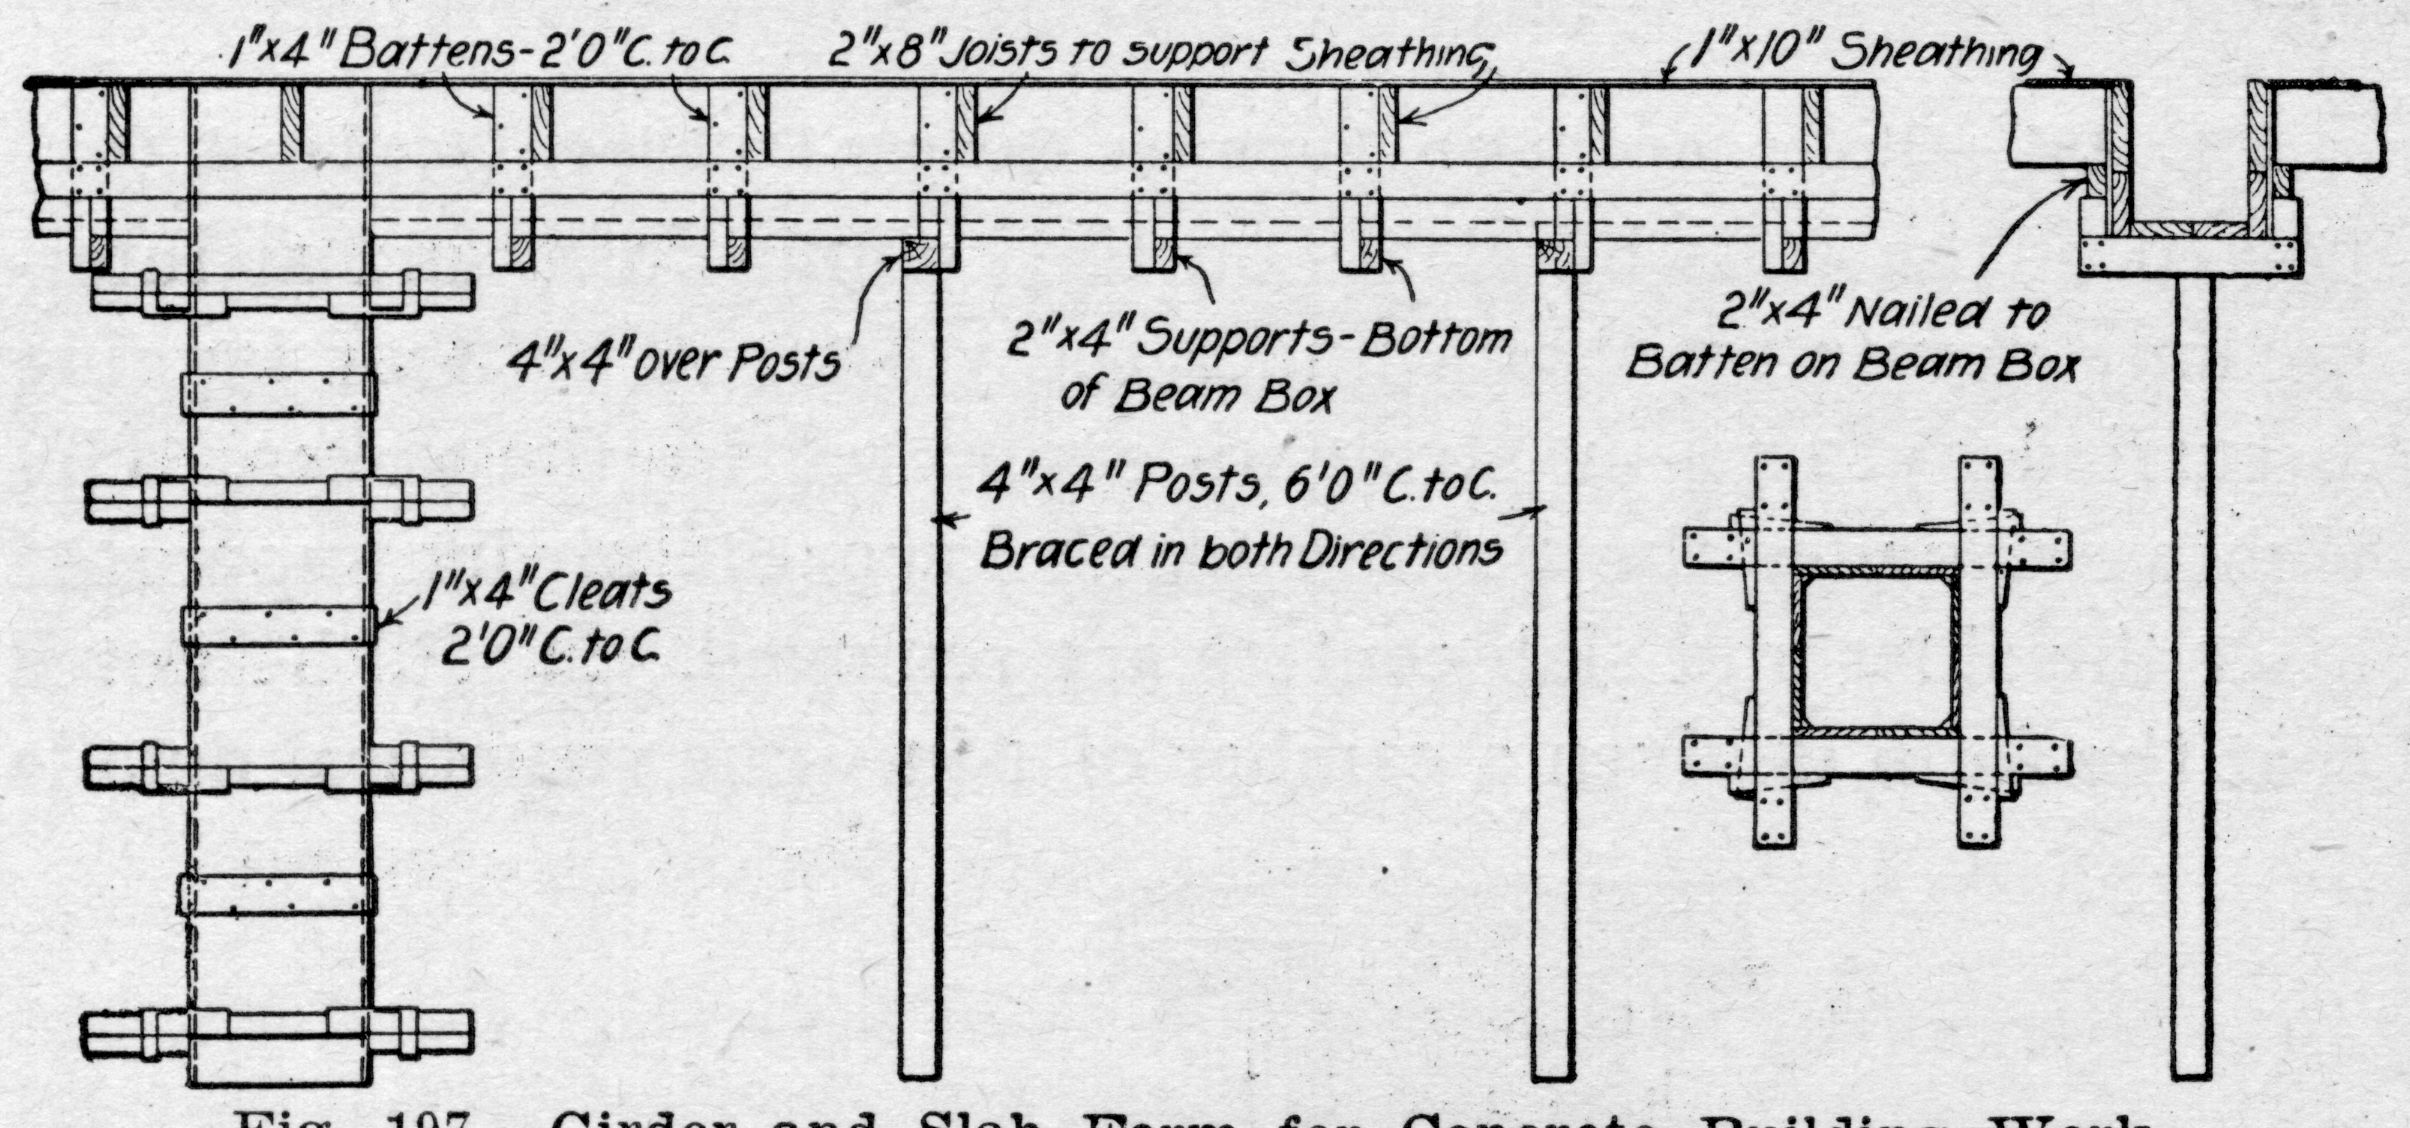 1"x4" Battens-2'0"C. to C.
2"x8" Joists to support Sheathing
1"x10" Sheathing
4"x4" over Posts
2"x4" Supports-Bottom
of Beam Box
2"x4" Nailed to
Batten on Beam Box
4"x4" Posts, 6'0"C. to C.
Braced in both Directions
1"x4" Cleats
2'0"C. to C.
Fig. 197. Girder and Slab Form for Concrete Building Work